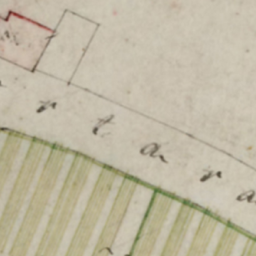 r t a r a